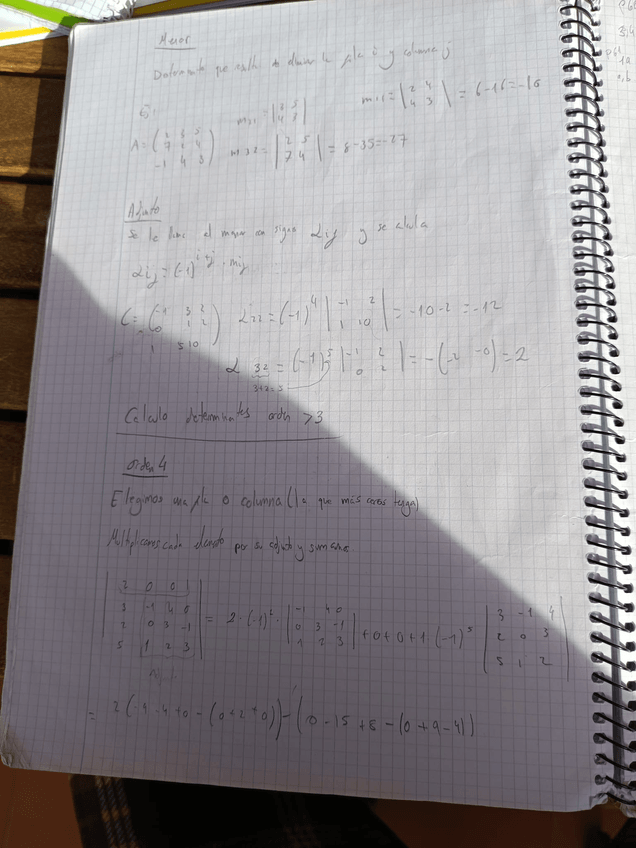 Menor
Determinante que resulta de eliminar la fila i y columna j
Ej:
A = ( 5 / 7 4 / -1 4 3 ) m₂₁ = | 5 / 4 | m₁₁ = | 2 4 / 4 3 | = 6-16=-10
m₃₂ = | 2 5 / 7 4 | = 8-35=-27
Adjunto
Se le llama el menor con signo αij y se calcula
αij = (-1)^(i+j) · mij
C = ( -1 3 2 / 0 1 2 / 1 5 10 ) α22 = (-1)^4 | -1 2 / 1 10 | = -10-2 = -12
α 32 = (-1)^5 | -1 2 / 0 2 | = -(-2 -0) = 2
3+2=5
Calculo determinantes orden >3
orden 4
Elegimos una fila o columna (la que más ceros tenga)
Multiplicamos cada elemento por su adjunto y sumamos
| 2 0 0 1 / 3 -1 4 0 / 2 0 3 -1 / 5 1 2 3 | = 2·(-1)^2 · | -1 4 0 / 0 3 -1 / 1 2 3 | +0+0+1 (-1)^5 | 3 -1 4 / 2 0 3 / 5 1 2 |
= 2(-9 -4 +0 - (0+2+0)) - (0 -15 +8 - (0+9-4))